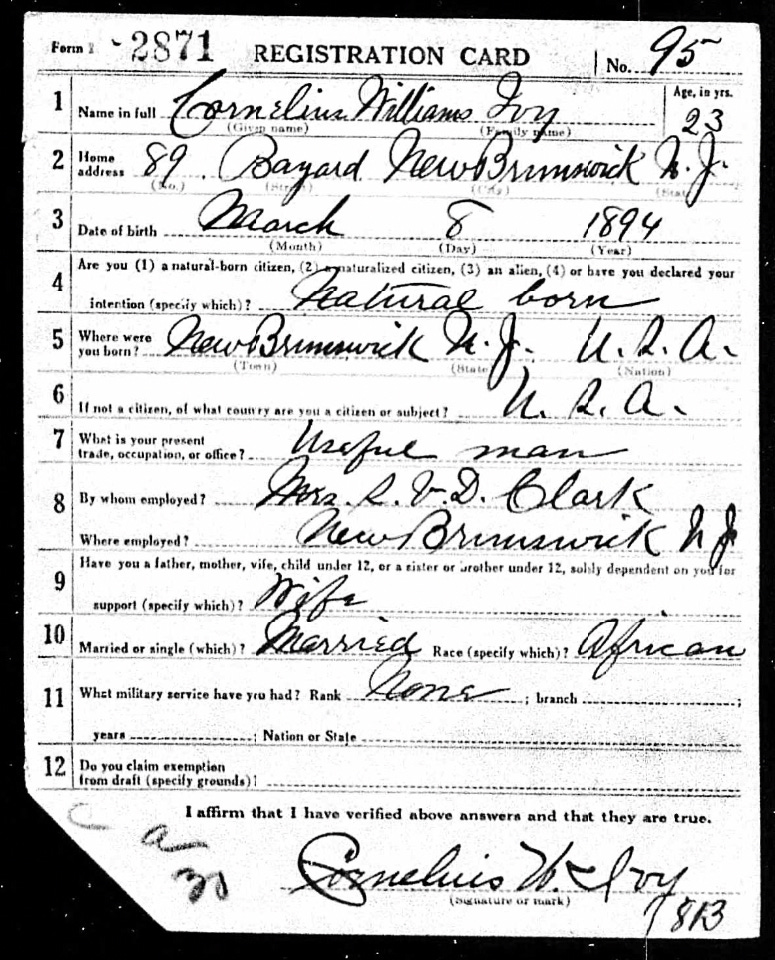 Form 1 2871 REGISTRATION CARD No. 95
1 Name in full Cornelius Williams Ivy Age, in yrs. 23
(Given name) (Family name)
2 Home address 89 Bayard New Brunswick N.J.
(No.) (Street) (City) (State)
3 Date of birth March 8 1894
(Month) (Day) (Year)
4 Are you (1) a natural-born citizen, (2) a naturalized citizen, (3) an alien, (4) or have you declared your
intention (specify which)? Natural born
5 Where were you born? New Brunswick N.J. U.S.A.
(Town) (State) (Nation)
6 If not a citizen, of what country are you a citizen or subject? U.S.A.
7 What is your present trade, occupation, or office? Useful man
8 By whom employed? Mrs. S. V. D. Clark
Where employed? New Brunswick N J
9 Have you a father, mother, wife, child under 12, or a sister or brother under 12, solely dependent on you for
support (specify which)? Wife
10 Married or single (which)? Married Race (specify which)? African
11 What military service have you had? Rank None ; branch ;
years ; Nation or State
12 Do you claim exemption
from draft (specify grounds)?
I affirm that I have verified above answers and that they are true.
Cornelius W. Ivy
(Signature or mark)